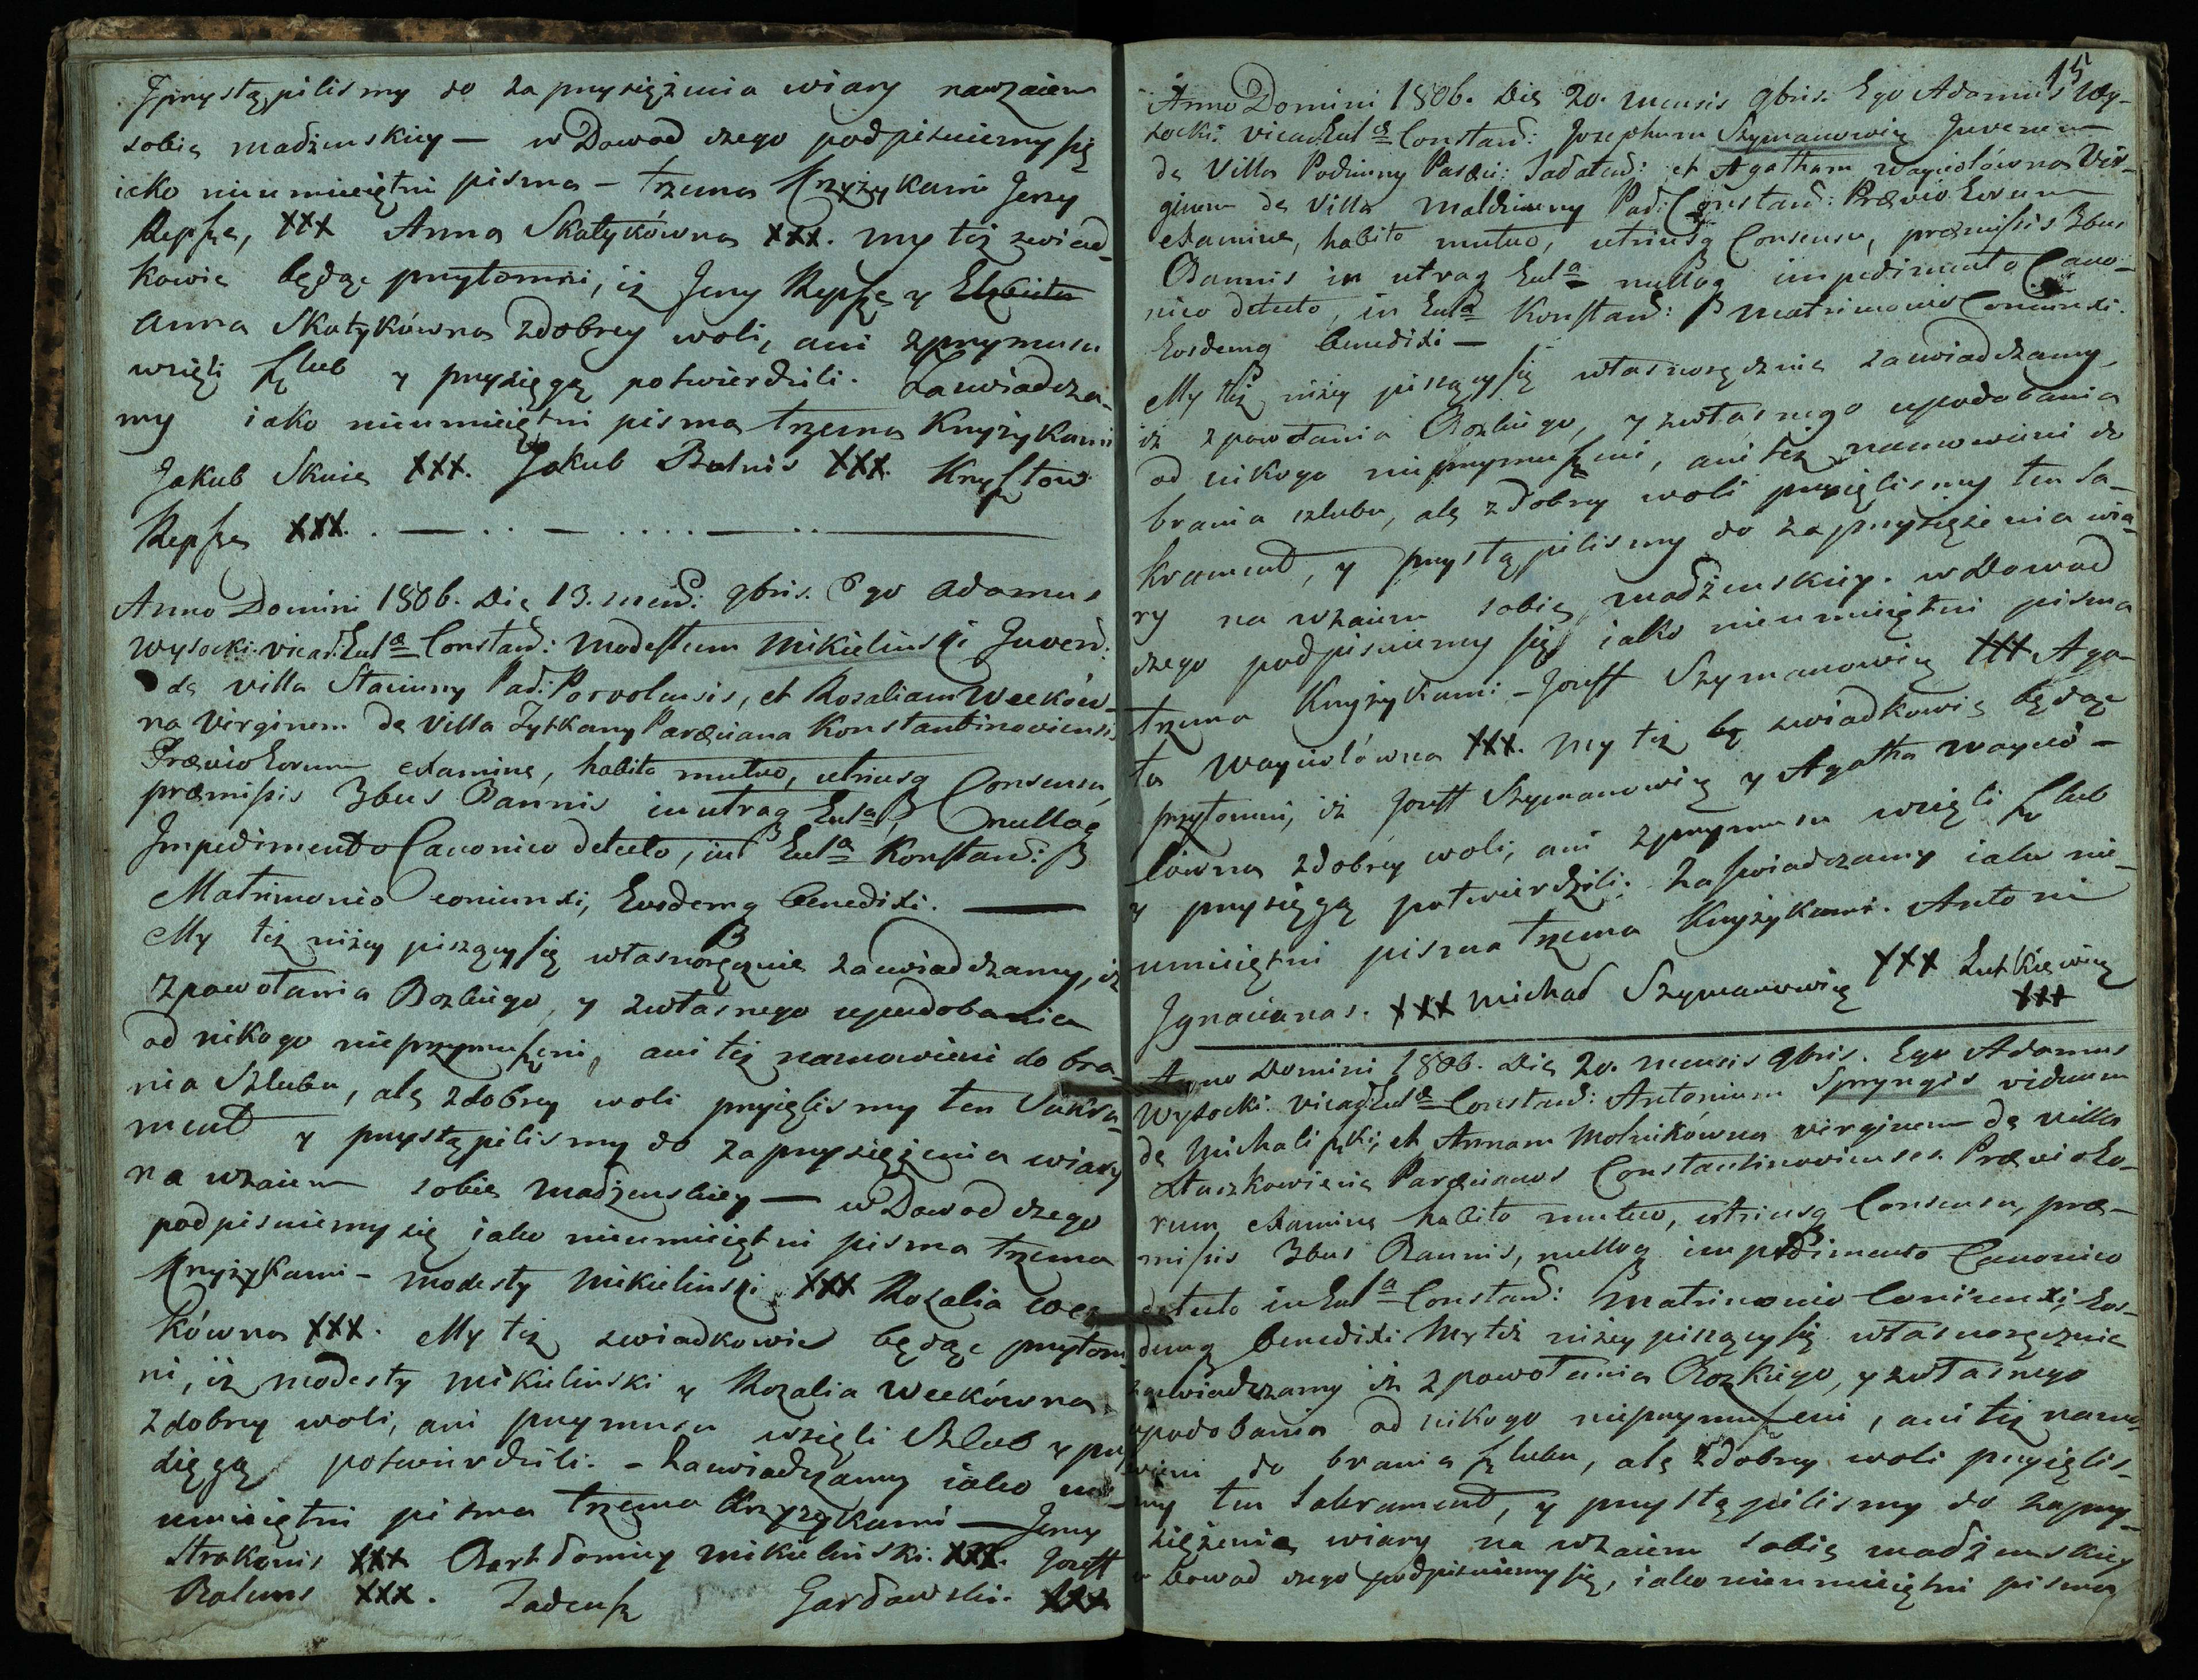 Jprzystąpilismy do zaprzysiężenia wiary nawzaiem
sobie madżenskiey — w Dowod czego podpisuiemy się
iako nieumieiętni pisma — trzema Krzyżykami Jerzy
Repsze, XXX Anna Skatykówna XXX. my też swiad-
kowie będąc przytomni, iż Jerzy Repsze y Elzbieta
Anna Skatykówna zdobrey woli, ani zprzymusu
wzieli szlub y przysięgą potwierdzili. Zaswiadcza-
my iako nieumieiętni pisma trzema Krzyżykami
Jakub Skuie XXX. Jakub Butnis XXX. Krysztow
Repsze XXX. . — . . — . . . . — . . —
Anno Domini 1806. Die 13. mens: 9bris. Ego Adamus
Wysocki. vicar: Eccl&ae; Constan: Modestum Mikielinski Juven:
de villa Staciuny Par: Poswolensis, et Rozaliam Weeków-
na Virginem de Villa Zytkany Paræciana Konstantinoviensi
Prævio Eorum examine, habito mutuo, utriusq Consensu,
præmissis 3bus Bannis in utraq Eccl&a; nulloq
Impedimento Canonico detecto, in Eccl&a; Konstan:
Matrimonio coniunxi, Eosdemq Benedixi. —
My też niżey piszący się własnoręcznie zaswiadczamy, iż
zpowołania Bozkiego, y zwłasnego upodobania
od nikogo nieprzymuszeni, ani też namowieni do bra-
nia Szlubu, ale zdobrey woli przyięlismy ten Sakra-
ment y przystąpilismy do zaprzysiężenia wiary
na wzaiem sobie madżenskiey — w Dowod czego
podpisuiemy się iako nieumieiętni pisma trzema
Krzyżykami — Modesty Mikielinski XXX Rozalia Wee-
kówna XXX. My też swiadkowie będąc przytom-
ni, iż modesty Mikielinski y Rozalia Weekówna
zdobrey woli, ani przymusu wzięli Szlub y przy
sięgą potwierdzili. — Zaswiadczamy iako nie-
umieiętni pisma trzema Krzyżykami — Jerzy
Strakonis XXX Bartłomiey Mikielinski. XXX. Jozeff
Baluns XXX. Tadeusz Gardowski. XXX
15
Anno Domini 1806. Die 20. mensis 9bris. Ego Adamus Wy-
socki. vicar: Eccl&ae; Constan: Josephum Szymanowicz Juvenem
de Villa Podziuny Paræci: Sadatan: et Agatham Wayciulówna Vir-
ginem de Villa Maldziuny Par: Constan: Prævio Eorum
examine, habito mutuo, utriusq Consensu, præmissis 3bus
Bannis in utraq Eccl&a; nulloq impedimento Cano-
nico detecto, in Eccl&a; Konstan: Matrimonio Coniunxi.
Eosdemq Benedixi —
My też niżey piszący się własnoręcznie zaswiadczamy,
iż zpowołania Bozkiego, y zwłasnego upodobania
od nikogo nieprzymuszeni, ani też namowieni do
brania szlubu, ale zdobrey woli przyięlismy ten Sa-
krament, y przystąpilismy do zaprzysiężenia wia-
ry na wzaiem sobie madżenskiey. w Dowod
czego podpisuiemy się iako nieumieiętni pisma
trzema Krzyżykami — Joseff Szymanowicz XXX Aga-
ta Wayciulówna XXX. My też swiadkowie będąc
przytomni, iż Joseff Szymanowicz y Agatha Wayciu-
lówna zdobrey woli, ani zprzymusu wzięli szlub
y przysięgą potwierdzili. Zaswiadczamy iako nie-
umieiętni pisma trzema Krzyżykami. Antoni
Jgnacianas. XXX Michał Szymanowicz XXX Lutkiewicz
XXX
Anno Domini 1806. Die 20. mensis 9bris. Ego Adamus
Wysocki. vicar: Eccl&ae; Constan: Antonium Spryngis viduum
de Michaliszki, et Annam Molnikówna virginem de villa
Łaszkowienie Paræcianos Constantinovienses. Prævio Eo-
rum examine habito mutuo, utriusq Consensu, præ-
missis 3bus Bannis, nulloq impedimento Canonico
detecto in Eccl&a; Constan: Matrimonio Coniunxi, Eos-
demq Benedixi My też niżey piszący się własnoręcznie
zaswiadczamy iż zpowołania Bozkiego, y zwłasnego
upodobania od nikogo nieprzymuszeni, ani też namo-
wieni do brania szlubu, ale zdobrey woli przyięlis-
my ten Sakrament, y przystąpilismy do zaprzy-
siężenia wiary na wzaiem sobie madżenskiey
w Dowod czego podpisuiemy się, iako nieumieiętni pisma